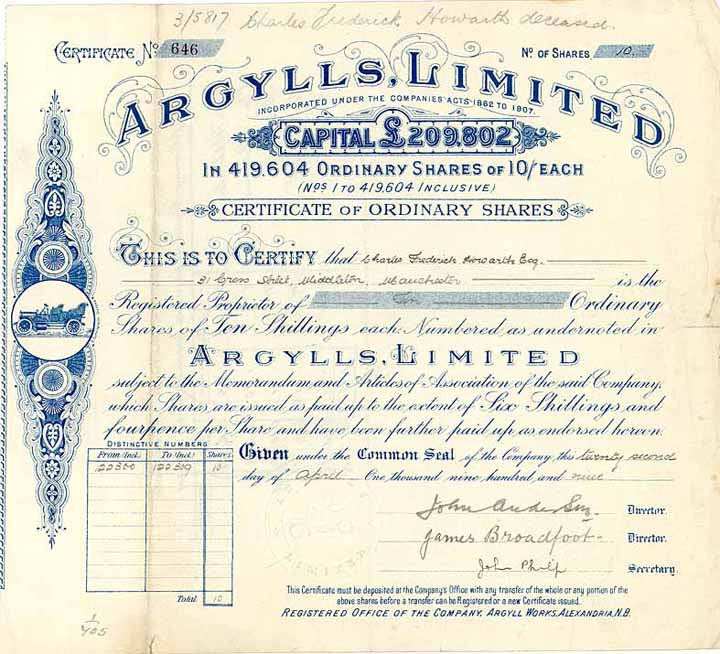 3/5817 Charles Frederick Howarth deceased.
CERTIFICATE No 646
No OF SHARES 10.
ARGYLLS, LIMITED
INCORPORATED UNDER THE COMPANIES ACTS 1862 TO 1907.
CAPITAL £209.802
IN 419.604 ORDINARY SHARES OF 10/- EACH
(Nos 1 TO 419,604 INCLUSIVE)
CERTIFICATE OF ORDINARY SHARES
THIS IS TO CERTIFY that Charles Frederick Howarth Esq.
31 Cross Street, Middleton, Manchester is the
Registered Proprietor of Ten Ordinary
Shares of Ten Shillings each. Numbered as undernoted in
ARGYLLS, LIMITED
subject to the Memorandum and Articles of Association of the said Company,
which Shares are issued as paid up to the extent of Six Shillings and
fourpence per Share and have been further paid up as endorsed hereon.
DISTINCTIVE NUMBERS
From (Incl.) To (Incl.) Shares
122300 122309 10
Total 10
Given under the Common Seal of the Company, this twenty second
day of April One thousand nine hundred and nine
John Anderson Director.
James Broadfoot Director.
John Philp Secretary.
This Certificate must be deposited at the Company's Office with any transfer of the whole or any portion of the
above shares before a transfer can be Registered or a new Certificate issued.
REGISTERED OFFICE OF THE COMPANY, ARGYLL WORKS, ALEXANDRIA, N.B.
1/405